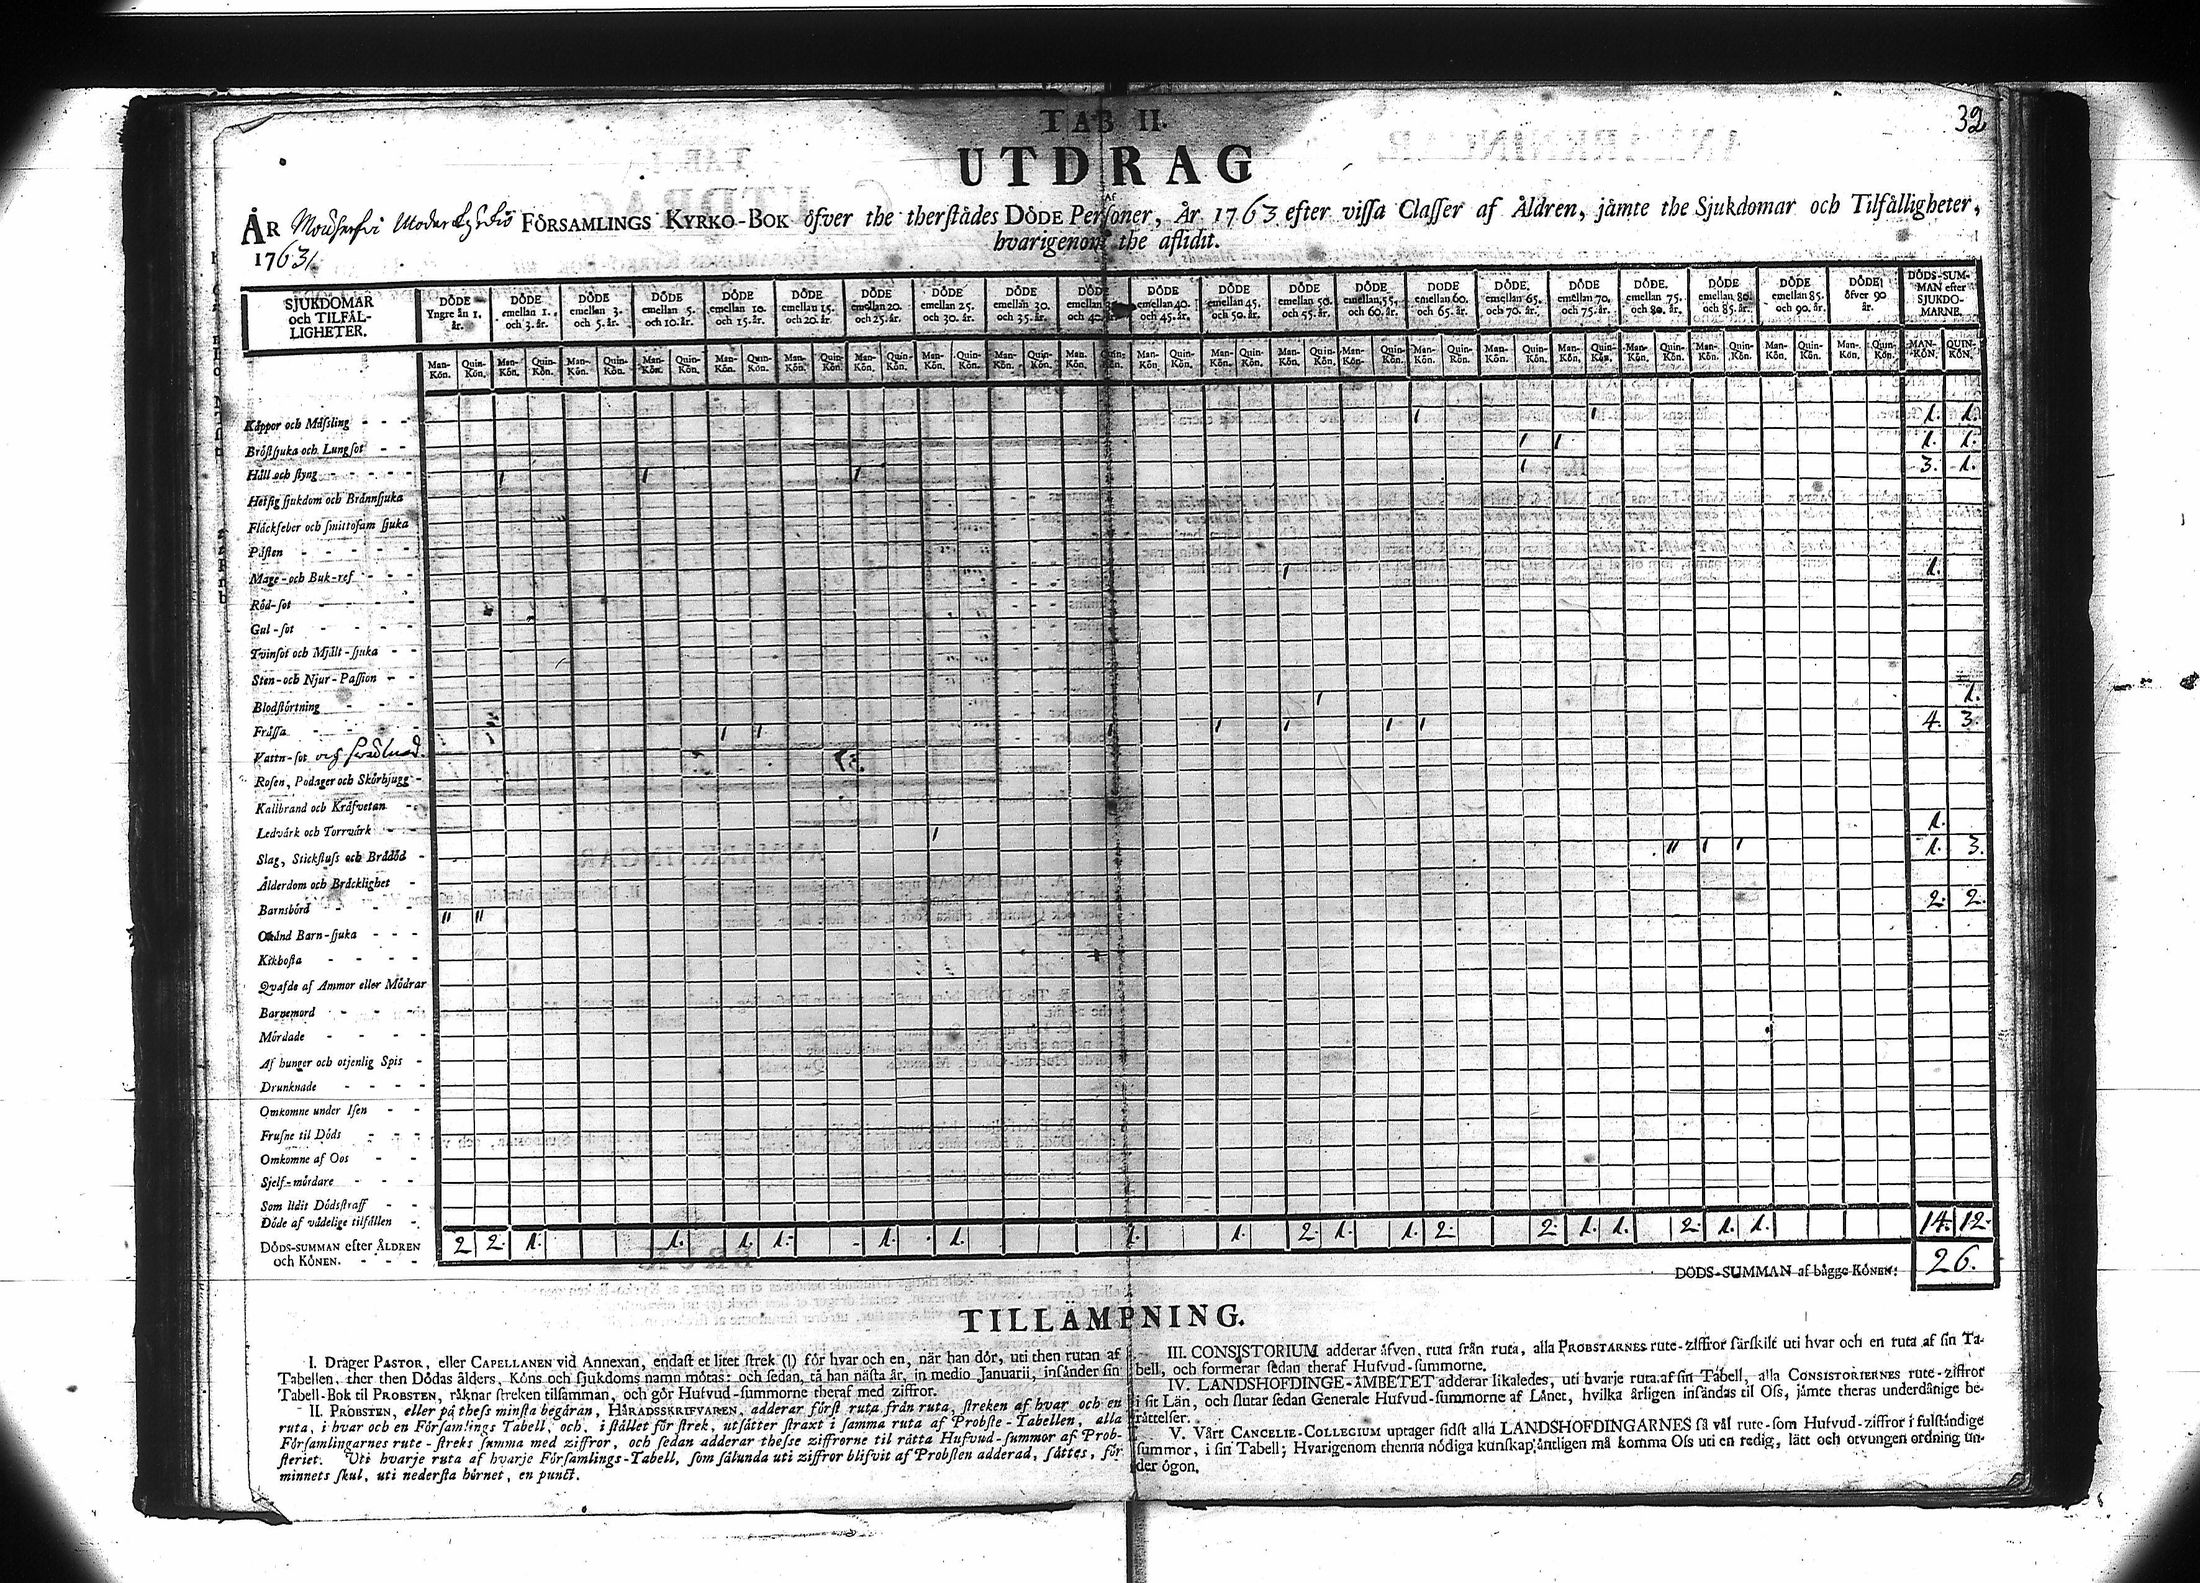 32
TAB II.
UTDRAG
Af
ÅR FÖRSAMLINGS KYRKO-BOK öfver the therstädes DÖDE Personer, År 1763 efter vissa Classer af Åldren, jämte the Sjukdomar och Tilfälligheter,
1763
hvarigenom the aflidit.
SJUKDOMAR och TILFÄL-LIGHETER.
DÖDE Yngre än 1. år.
DÖDE emellan 1. och 3. år.
DÖDE emellan 3. och 5. år.
DÖDE emellan 5. och 10. år.
DÖDE emellan 10. och 15. år.
DÖDE emellan 15. och 20. år.
DÖDE emellan 20. och 25. år.
DÖDE emellan 25. och 30. år.
DÖDE emellan 30. och 35. år.
DÖDE emellan och 40. år.
DÖDE emellan 40. och 45. år.
DÖDE emellan 45. och 50. år.
DÖDE emellan 50. och 55. år.
DÖDE emellan 55. och 60. år.
DÖDE emellan 60. och 65. år.
DÖDE emellan 65. och 70. år.
DÖDE emellan 70. och 75. år.
DÖDE emellan 75. och 80. år.
DÖDE emellan 80. och 85. år.
DÖDE emellan 85. och 90. år.
DÖDE öfver 90 år.
DÖDS-SUM-MAN efter SJUKDO-MARNE.
Man-Kön. Quin-Kön. Man-Kön. Quin-Kön. Man-Kön. Quin-Kön. Man-Kön. Quin-Kön. Man-Kön. Quin-Kön. Man-Kön. Quin-Kön. Man-Kön. Quin-Kön. Man-Kön. Quin-Kön. Man-Kön. Quin-Kön. Man-Kön. Quin-Kön. Man-Kön. Quin-Kön. Man-Kön. Quin-Kön. Man-Kön. Quin-Kön. Man-Kön. Quin-Kön. Man-Kön. Quin-Kön. Man-Kön. Quin-Kön. Man-Kön. Quin-Kön. Man-Kön. Quin-Kön. Man-Kön. Quin-Kön. Man-Kön. Quin-Kön. Man-Kön. Quin-Kön. MAN-KÖN. QUIN-KÖN.
Kåppor och Mässling - - - ı ı 1. 1.
Bröstsjuka och Lungsot - - ı ı 1. 1.
Håll och styng - - - - ı ı ı ı 3. 1.
Hetsig sjukdom och Brännsjuka
Fläckfeber och smittosam sjuka
Pästen - - - - -
Mage-och Buk-ref - - - ı 1.
Röd-sot - - - -
Gul-sot - - - -
Tvinsot och Mjält-sjuka - -
Sten-och Njur-Passion - -
Blodstörtning - - - ı 1.
Frässa - - - - ı ı ı ı ı ı ı 4. 3.
Vattn-sot och
Rosen, Podager och Skörbjugg -
Kallbrand och Kräfvetan -
Ledvärk och Torrvärk - - ı 1.
Slag, Stickfluss och Brådöd - ıı ı ı 1. 3.
Ålderdom och Bräcklighet -
Barnsbörd - - - - ıı ıı 2. 2.
Okänd Barn-sjuka - - -
Kikhosta - - - -
Qvafde af Ammor eller Mödrar
Barnemord - - - -
Mördade - - - -
Af hunger och otjenlig Spis -
Drunknade - - - -
Omkomne under Isen - -
Frusne til Döds - - -
Omkomne af Oos - -
Sjelf-mördare - - -
Som lidit Dödsstraff - -
Döde af vådelige tilfällen -
DÖDS-SUMMAN efter ÅLDREN och KÖNEN. - - - 2 2. 1. 1. 1. 1. 1. 1. 1. 1. 2. 1. 1. 2. 2. 1. 1. 2. 1. 1. 14. 12.
DÖDS-SUMMAN af bägge KÖNEN: 26.
TILLÄMPNING.
I. Drager PASTOR, eller CAPELLANEN vid Annexan, endast et litet strek (I) för hvar och en, när han dör, uti then rutan af
Tabellen, ther then Dödas ålders, Köns och sjukdoms namn mötas: och sedan, tå han nästa år, in medio Januarii, insänder sin
Tabell-Bok til PROBSTEN, räknar streken tilsamman, och gör Hufvud-summorne theraf med ziffror.
II. PROBSTEN, eller på thess minsta begäran, HÄRADSSKRIFVAREN, adderar först ruta från ruta, streken af hvar och en
ruta, i hvar och en Församlings Tabell, och, i stället för strek, utsätter straxt i samma ruta af Probste-Tabellen, alla
Församlingarnes rute-streks summa med ziffror, och sedan adderar thesse ziffrorne til rätta Hufvud-summor af Prob-
steriet. Uti hvarje ruta af hvarje Församlings-Tabell, som sålunda uti ziffror blifvit af Probsten adderad, sättes, för
minnets skul, uti nedersta hörnet, en punct.
III. CONSISTORIUM adderar äfven, ruta från ruta, alla PROBSTARNES rute-ziffror särskilt uti hvar och en ruta af sin Ta-
bell, och formerar sedan theraf Hufvud-summorne.
IV. LANDSHÖFDINGE-ÄMBETET adderar likaledes, uti hvarje ruta af sin Tabell, alla CONSISTORIERNES rute-ziffror
i sit Län, och slutar sedan Generale Hufvud-summorne af Länet, hvilka årligen insändas til Oss, jämte theras underdånige be-
rättelser.
V. Vårt CANCELIE-COLLEGIUM uptager sidst alla LANDSHÖFDINGARNES så väl rute-som Hufvud-ziffror i fulständige
summor, i sin Tabell; Hvarigenom thenna nödiga kunskap äntligen må komma Oss uti en redig, lätt och otvungen ordning un-
der ögon.